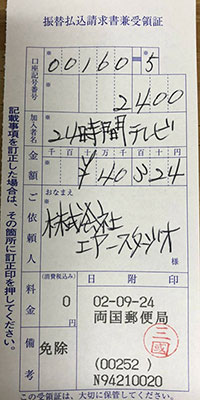 振替払込請求書兼受領証
口座記号番号
00160 5
2400
加入者名
24時間テレビ
金額
千 百 十 万 千 百 十 円
¥40324
ご依頼人
おなまえ
株式会社
エアースタジオ
様
料金
(消費税込み)
0 円
日附印
02-09-24
両国郵便局
三國
備考
免除
(00252)
N94210020
この受領証は、大切に保管してください。
記載事項を訂正した場合は、その箇所に訂正印を押してください。